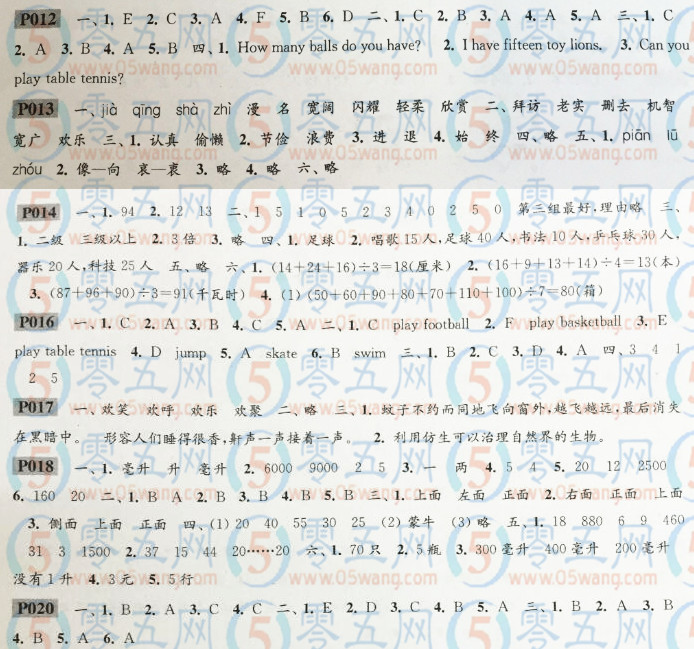 P012 一、1. E 2. C 3. A 4. F 5. B 6. D 二、1. C 2. B 3. A 4. A 5. A 三、1. C
2. A 3. B 4. A 5. B 四、1. How many balls do you have? 2. I have fifteen toy lions. 3. Can you
play table tennis?
P013 一、jià qīng shà zhì 漫 名 宽阔 闪耀 轻柔 欣赏 二、拜访 老实 删去 机智
宽广 欢乐 三、1. 认真 偷懒 2. 节俭 浪费 3. 进 退 4. 始 终 四、略 五、1. piān lǜ
zhóu 2. 像—向 哀—衰 3. 略 4. 略 六、略
P014 一、1. 94 2. 12 13 二、1 5 1 0 5 2 3 4 0 2 5 0 第三组最好，理由略 三、
1. 二级 三级以上 2. 3倍 3. 略 四、1. 足球 2. 唱歌15人，足球40人，书法10人，乒乓球30人，
器乐20人，科技25人 五、略 六、1. (14+24+16)÷3=18(厘米) 2. (16+9+13+14)÷4=13(本)
3. (87+96+90)÷3=91(千瓦时) 4. (1) (50+60+90+80+70+110+100)÷7=80(箱)
P016 一、1. C 2. A 3. B 4. C 5. A 二、1. C play football 2. F play basketball 3. E
play table tennis 4. D jump 5. A skate 6. B swim 三、1. B 2. C 3. D 4. A 四、3 4 1
2 5
P017 一、欢笑 欢呼 欢乐 欢聚 二、略 三、1. 蚊子不约而同地飞向窗外，越飞越远，最后消失
在黑暗中。 形容人们睡得很香，鼾声一声接着一声。 2. 利用仿生可以治理自然界的生物。
P018 一、1. 毫升 升 毫升 2. 6000 9000 2 5 3. 一 两 4. 5 4 5. 20 12 2500
6. 160 20 二、1. B A 2. B 3. B 4. B 5. B 三、1. 上面 左面 正面 2. 右面 正面 上面
3. 侧面 上面 正面 四、(1) 20 40 55 30 25 (2) 蒙牛 (3) 略 五、1. 18 880 6 9 460
31 3 1500 2. 37 15 44 20……20 六、1. 70只 2. 5瓶 3. 300毫升 400毫升 200毫升
没有1升 4. 3元 5. 5行
P020 一、1. B 2. A 3. C 4. C 二、1. E 2. D 3. C 4. B 5. A 三、1. B 2. A 3. B
4. B 5. A 6. A